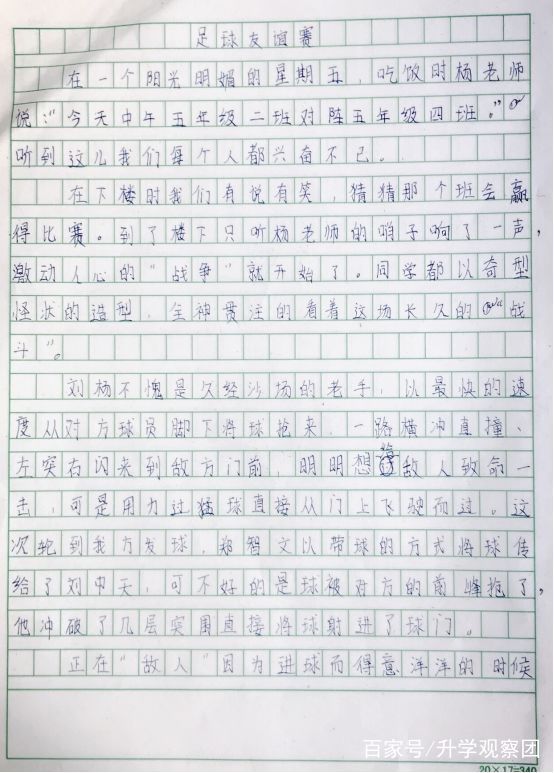 足球友谊赛
在一个阳光明媚的星期五，吃饭时杨老师
说："今天中午五年级二班对阵五年级四班。"
听到这儿我们每个人都兴奋不已。
在下楼时我们有说有笑，猜猜那个班会赢
得比赛。到了楼下只听杨老师的哨子响了一声，
激动人心的"战争"就开始了。同学都以奇型
怪状的造型，全神贯注的看着这场长久的"战
斗"。
刘杨不愧是久经沙场的老手，以最快的速
度从对方球员脚下将球抢来，一路横冲直撞、
左突右闪来到敌方门前，明明想给敌人致命一
击，可是用力过猛球直接从门上飞驶而过。这
次轮到我方发球，郑智文以带球的方式将球传
给了刘中天，可不好的是球被对方的前峰抢了，
他冲破了几层突围直接将球射进了球门。
正在"敌人"因为进球而得意洋洋的时候
百家号/升学观察团
20×17=340